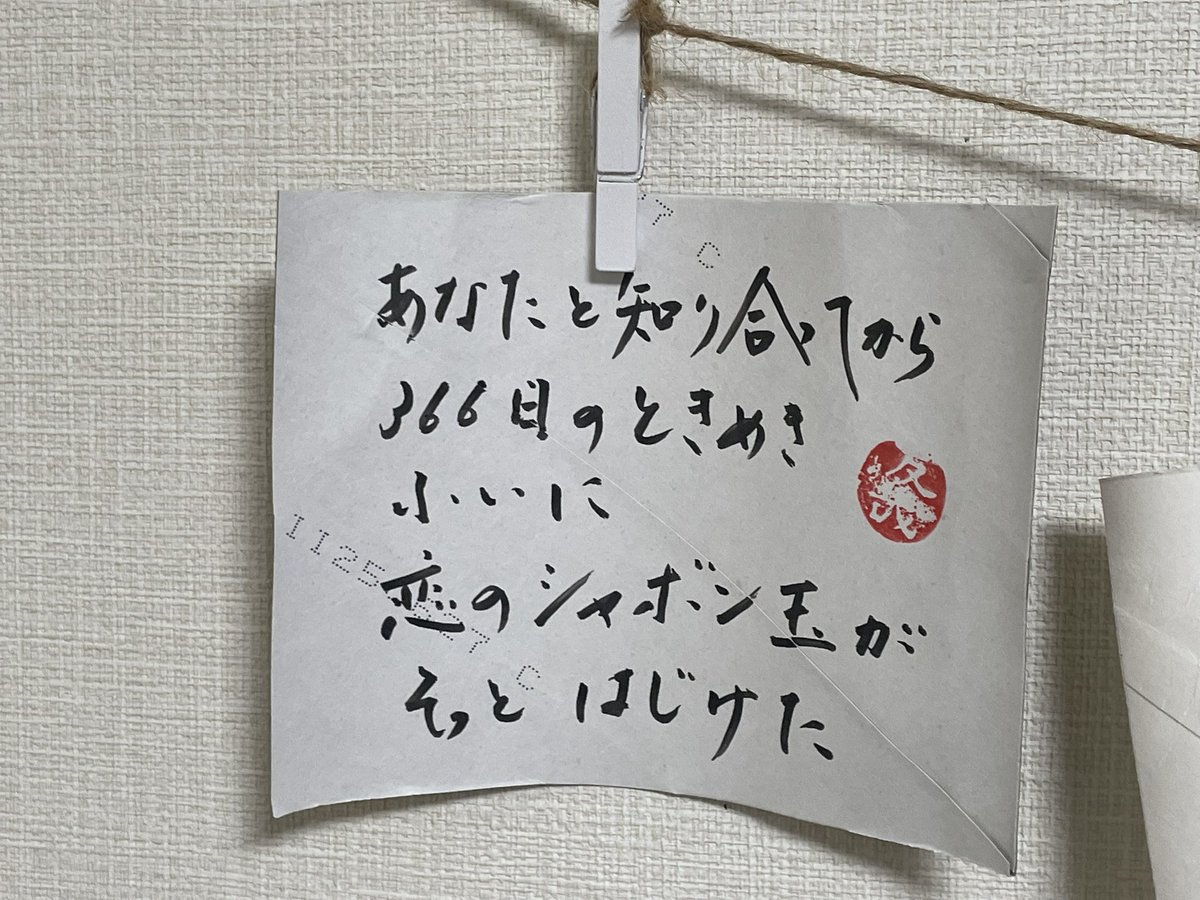 7 C
あなたと知り合ってから
366日のときめき
小いに
恋のシャボン玉が
そっと はじけた